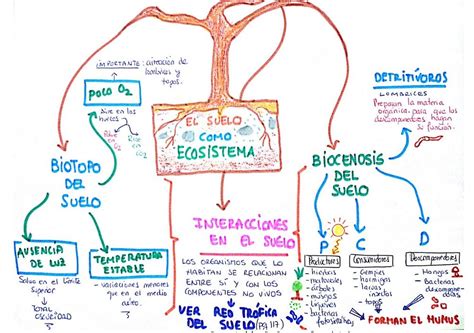 IMPORTANTE: aireación de
lombrices y
topos.
POCO O2
Aire en los
huecos
EL SUELO
COMO
ECOSISTEMA
DETRITÍVOROS
LOMBRICES
Preparan la materia
orgánica para que los
descomponedores hagan
su función.
BIOTOPO
DEL
SUELO
BIOCENOSIS
DEL
SUELO
INTERACCIONES
EN EL SUELO
AUSENCIA
DE LUZ
Salvo en el límite
superior
TOTAL
OSCURIDAD
TEMPERATURA
ESTABLE
- Variaciones menores
que en el medio
aéreo.
LOS ORGANISMOS QUE LO
HABITAN SE RELACIONAN
ENTRE SÍ Y CON LOS
COMPONENTES NO VIVOS
VER RED TRÓFICA
DEL SUELO (pg 117)
P C D
Productores
- hierbas
- matorrales
- árboles
- musgos
- líquenes
- bacterias
fotosintéticas
Consumidores
- lombrices
- hormigas
- larvas
insectos
- topos
Descomponedores
- Hongos
- Bacterias
descompone-
doras
FORMAN EL HUMUS